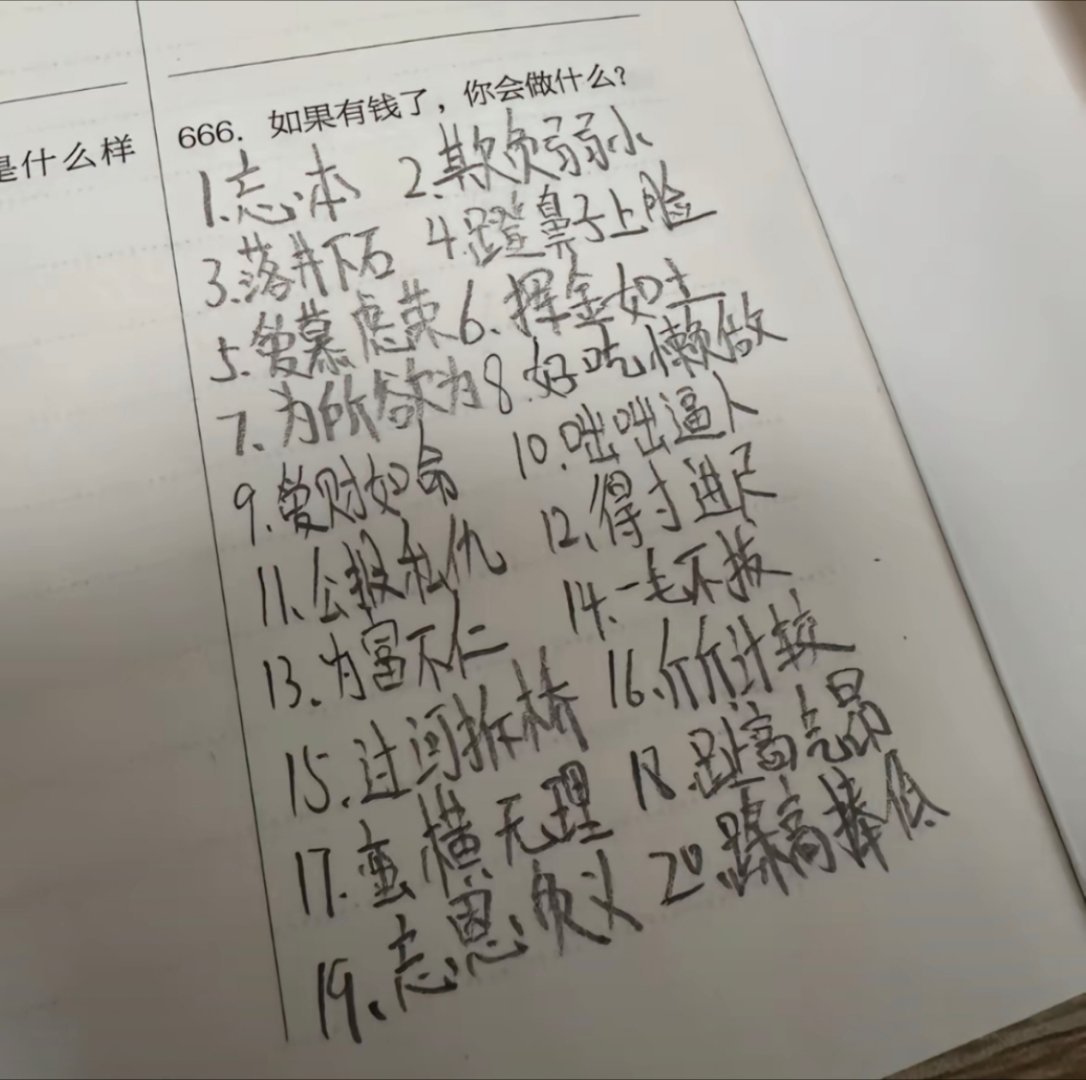 是什么样
666. 如果有钱了，你会做什么？
1.忘本 2.欺负弱小
3.落井下石 4.蹬鼻子上脸
5.爱慕虚荣 6.挥金如土
7.为所欲为 8.好吃懒做
9.爱财如命 10.咄咄逼人
11.公报私仇 12.得寸进尺
13.为富不仁 14.一毛不拔
15.过河拆桥 16.斤斤计较
17.蛮横无理 18.趾高气昂
19.忘恩负义 20.踩高捧低